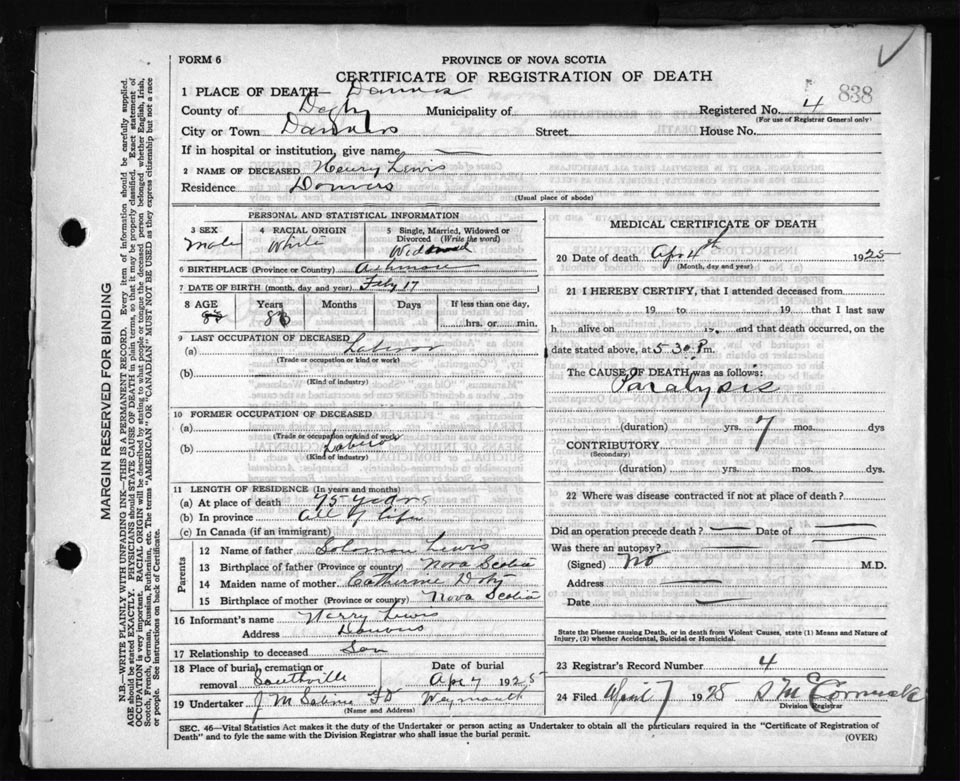 FORM 6
PROVINCE OF NOVA SCOTIA
CERTIFICATE OF REGISTRATION OF DEATH
838
1 PLACE OF DEATH— Danvers
County of Digby Municipality of Registered No. 4
(For use of Registrar General only)
City or Town Danvers Street House No.
If in hospital or institution, give name —
2 NAME OF DECEASED Henry Lewis
Residence Danvers
(Usual place of abode)
PERSONAL AND STATISTICAL INFORMATION
3 SEX 4 RACIAL ORIGIN 5 Single, Married, Widowed or Divorced (Write the word)
Male White Widowed
6 BIRTHPLACE (Province or Country) Ashmore
7 DATE OF BIRTH (month, day and year) Feby 17
8 AGE Years Months Days If less than one day,
83 hrs. or min.
9 LAST OCCUPATION OF DECEASED
(a) Laborer
(Trade or occupation or kind of work)
(b)
(Kind of industry)
10 FORMER OCCUPATION OF DECEASED
(a)
(Trade or occupation or kind of work)
(b) Laborer
(Kind of industry)
11 LENGTH OF RESIDENCE (In years and months)
(a) At place of death 75 years
(b) In province all of life
(c) In Canada (if an immigrant)
Parents
12 Name of father Solomon Lewis
13 Birthplace of father (Province or country) Nova Scotia
14 Maiden name of mother Catherine Doty
15 Birthplace of mother (Province or country) Nova Scotia
16 Informant's name Harry Lewis
Address Danvers
17 Relationship to deceased Son
18 Place of burial, cremation or removal Southville
Date of burial Apr 7 1925
19 Undertaker J M Sabine FD Weymouth
(Name and Address)
MEDICAL CERTIFICATE OF DEATH
20 Date of death Apr 4th 1925
(Month, day and year)
21 I HEREBY CERTIFY, that I attended deceased from
19 to 19 that I last saw
h alive on 19, and that death occurred, on the
date stated above, at 5 30 P m.
The CAUSE OF DEATH was as follows:
Paralysis
(duration) yrs. 7 mos. dys
CONTRIBUTORY
(Secondary)
(duration) yrs. mos. dys.
22 Where was disease contracted if not at place of death?
Did an operation precede death? — Date of —
Was there an autopsy? —
(Signed) No M.D.
Address —
Date —
State the Disease causing Death, or in death from Violent Causes, state (1) Means and Nature of
Injury, (2) whether Accidental, Suicidal or Homicidal.
23 Registrar's Record Number 4
24 Filed April 7 1925 S McCormack
Division Registrar
SEC. 46—Vital Statistics Act makes it the duty of the Undertaker or person acting as Undertaker to obtain all the particulars required in the "Certificate of Registration of
Death" and to fyle the same with the Division Registrar who shall issue the burial permit.
(OVER)
MARGIN RESERVED FOR BINDING
N.B.—WRITE PLAINLY WITH UNFADING INK—THIS IS A PERMANENT RECORD. Every item of information should be carefully supplied.
AGE should be stated EXACTLY. PHYSICIANS should STATE CAUSE OF DEATH in plain terms, so that it may be properly classified. Exact statement of
OCCUPATION is very important. RACIAL ORIGIN will be described by stating to what people or tongue the deceased person belonged whether English, Irish,
Scotch, French, German, Russian, Ruthenian, etc. The terms "AMERICAN" OR "CANADIAN" MUST NOT BE USED as they express citizenship but not a race
or people. See instructions on back of Certificate.